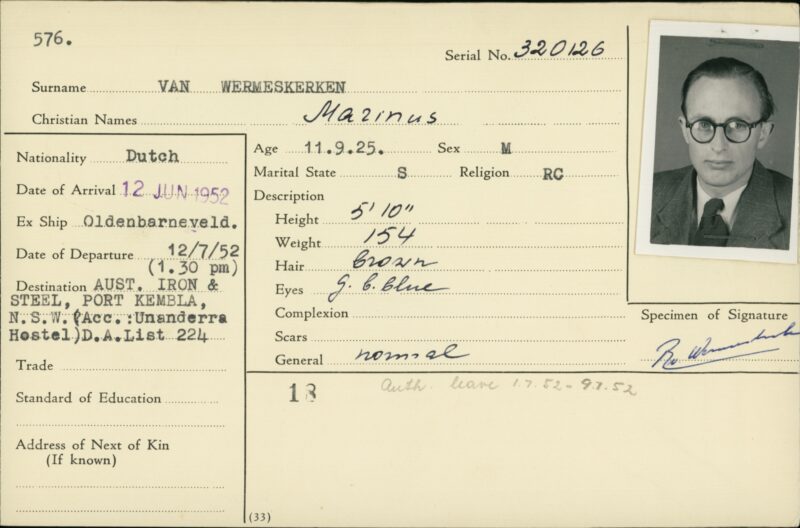 576.
Serial No. 320126
Surname VAN WERMESKERKEN
Christian Names Marinus
Nationality Dutch
Date of Arrival 12 JUN 1952
Ex Ship Oldenbarneveld.
Date of Departure 12/7/52
(1.30 pm)
Destination AUST. IRON &
STEEL, PORT KEMBLA,
N.S.W.(Acc.:Unanderra
Hostel)D.A.List 224
Trade
Standard of Education
Address of Next of Kin
(If known)
Age 11.9.25. Sex M
Marital State S Religion RC
Description
Height 5' 10"
Weight 154
Hair brown
Eyes g. b. blue
Complexion
Scars
General normal
Specimen of Signature
18
Auth. leave 1.7.52 - 9.7.52
(33)